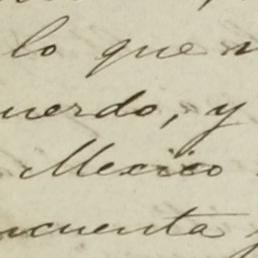 lo que
uerdo, y
Mexico
ncuenta y